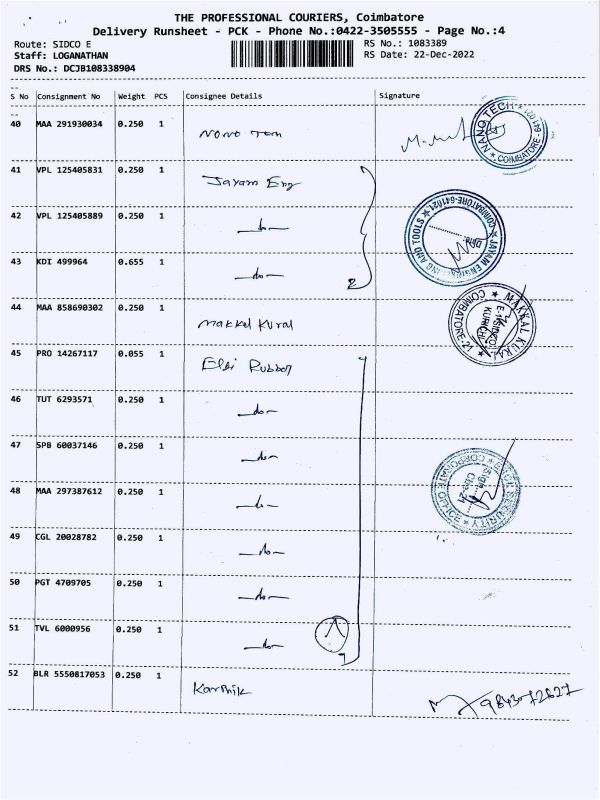 THE PROFESSIONAL COURIERS, Coimbatore
Delivery Runsheet - PCK - Phone No.:0422-3505555 - Page No.:4
Route: SIDCO E
RS No.: 1083389
Staff: LOGANATHAN
RS Date: 22-Dec-2022
DRS No.: DCJB108338904
S No Consignment No Weight PCS Consignee Details Signature
40 MAA 291930034 0.250 1 Nano Tech
NANO TECH ★ COIMBATORE - 641 021 ★
41 VPL 125405831 0.250 1 Jayam Eng
42 VPL 125405889 0.250 1 -do-
★ JAYAM ENGINEERING AND TOOLS ★ COIMBATORE-641021
43 KDI 499964 0.655 1 -do-
2
44 MAA 858690302 0.250 1 Makkal Kural
★ MAKKAL KURAL ★ COIMBATORE-21
SIDCO
KURICHI
45 PRO 14267117 0.055 1 Elgi Rubber
46 TUT 6293571 0.250 1 -do-
47 SPB 60037146 0.250 1 -do-
48 MAA 297387612 0.250 1 -do-
SECURITY ★ CORPORATE OFFICE ★
Sign
49 CGL 20028782 0.250 1 -do-
50 PGT 4709705 0.250 1 -do-
51 TVL 6000956 0.250 1 -do-
7
52 BLR 5550817053 0.250 1 Karthik